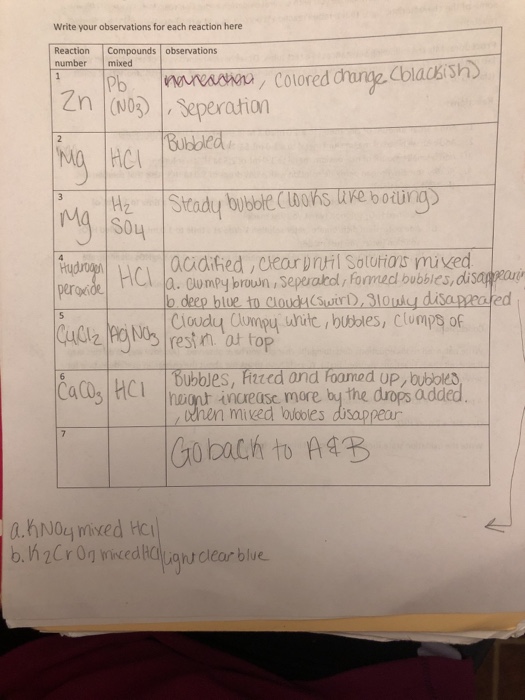 Write your observations for each reaction here
Reaction number
Compounds mixed
observations
1
Zn
Pb
(NO3)
, Colored change (blackish)
, Seperation
2
Mg
HCl
Bubbled
3
Mg
H2
SO4
Steady bubble (looks like boiling)
4
Hydrogen
peroxide
HCl
acidified, clear until solutions mixed
a. clumpy brown, seperated, formed bubbles, disappearing
b. deep blue to cloudy (swirl), slowly disappeared
5
CuCl2
AgNO3
Cloudy Clumpy white, bubbles, clumps of
at top
6
CaCO3
HCl
Bubbles, fizzed and foamed up, bubbles
height increase more by the drops added.
, when mixed bubbles disappear
7
Go back to A&B
a. KNO4 mixed HCl
b. K2Cr O7 mixed HCl light clear blue